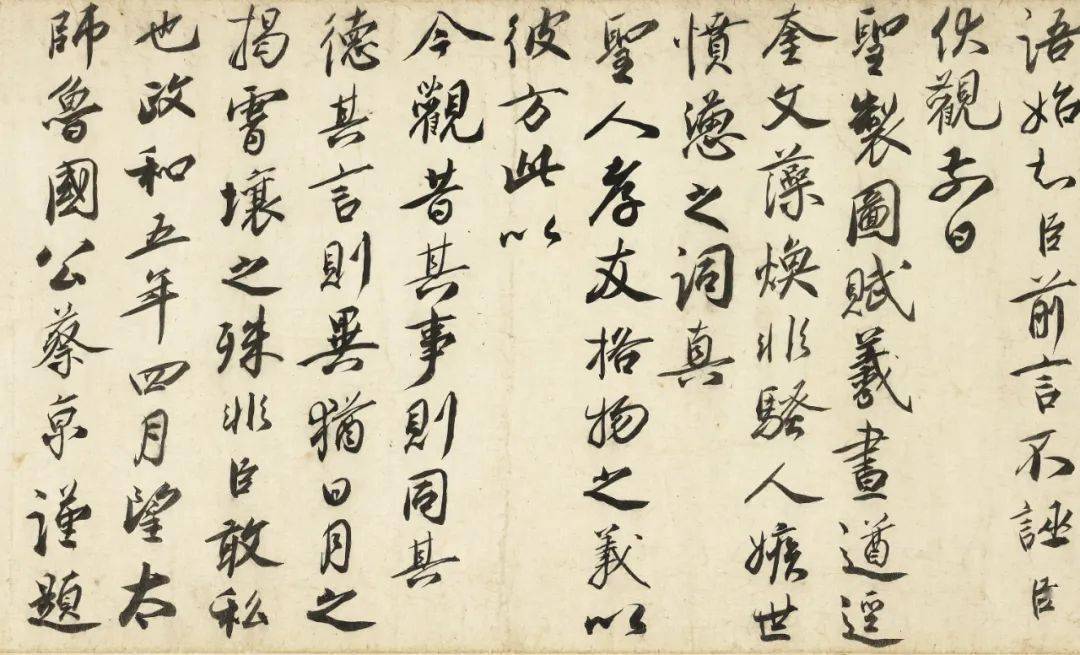 語始知臣前言不誣臣
伏觀前日
聖製圖賦羲畫遒逕
奎文藻煥非騷人嫉世
憤懣之詞真
聖人孝友格物之義以
彼方此以
今觀昔其事則同其
德其言則異猶日月之
揭霄壤之殊非臣敢私
也政和五年四月望太
師魯國公蔡京謹題